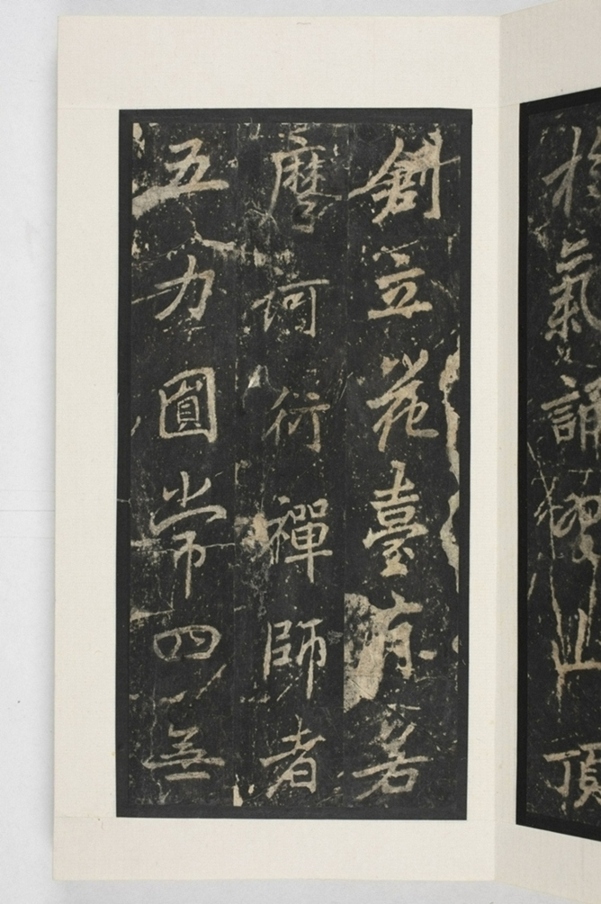 氣誦山頂
創立花臺有若
摩訶衍禪師者
五力圓常四無